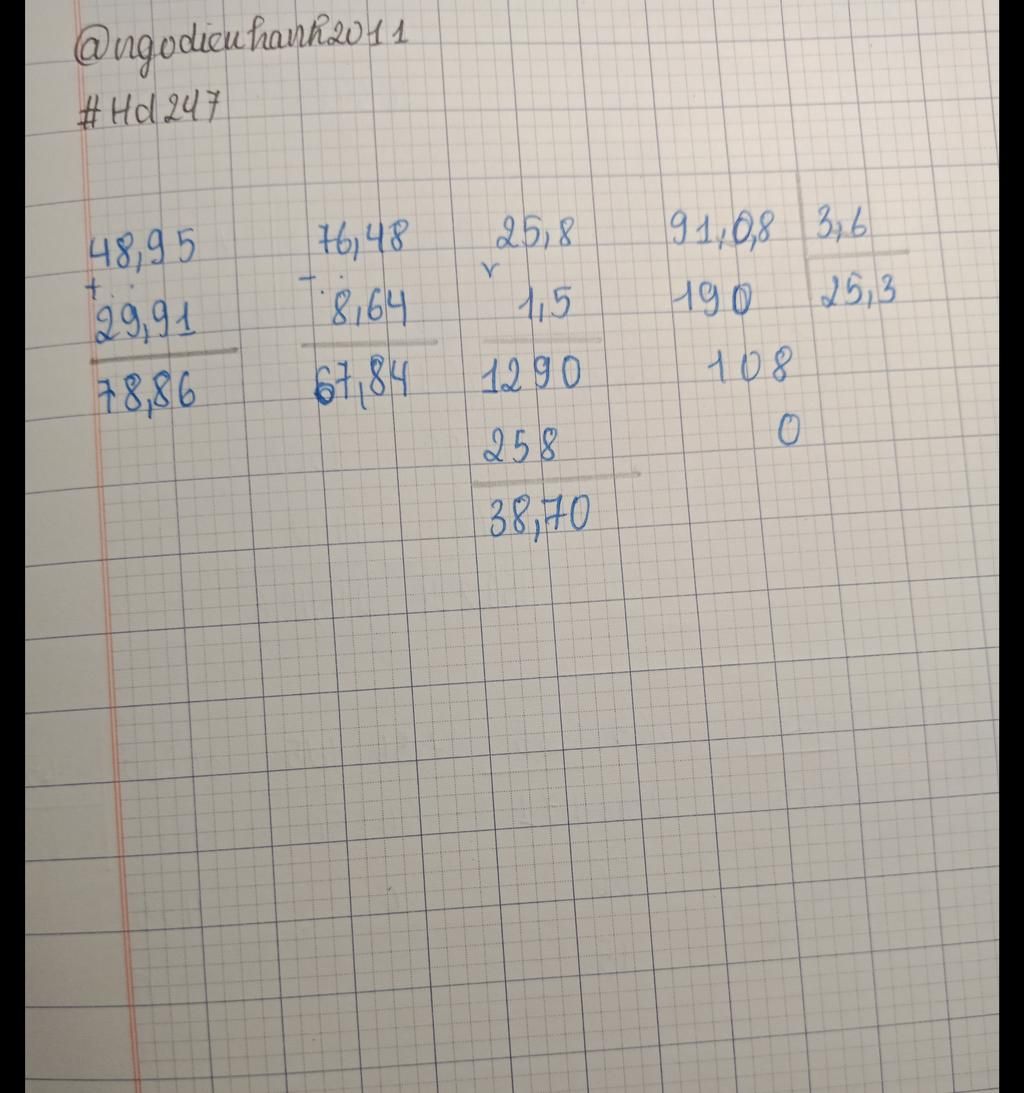 @ngodieuhanh2011
#Hd247
48,95
+
29,91
78,86
76,48
-
8,64
67,84
25,8
x
1,5
1290
258
38,70
91,0,8 3,6
190 25,3
108
0